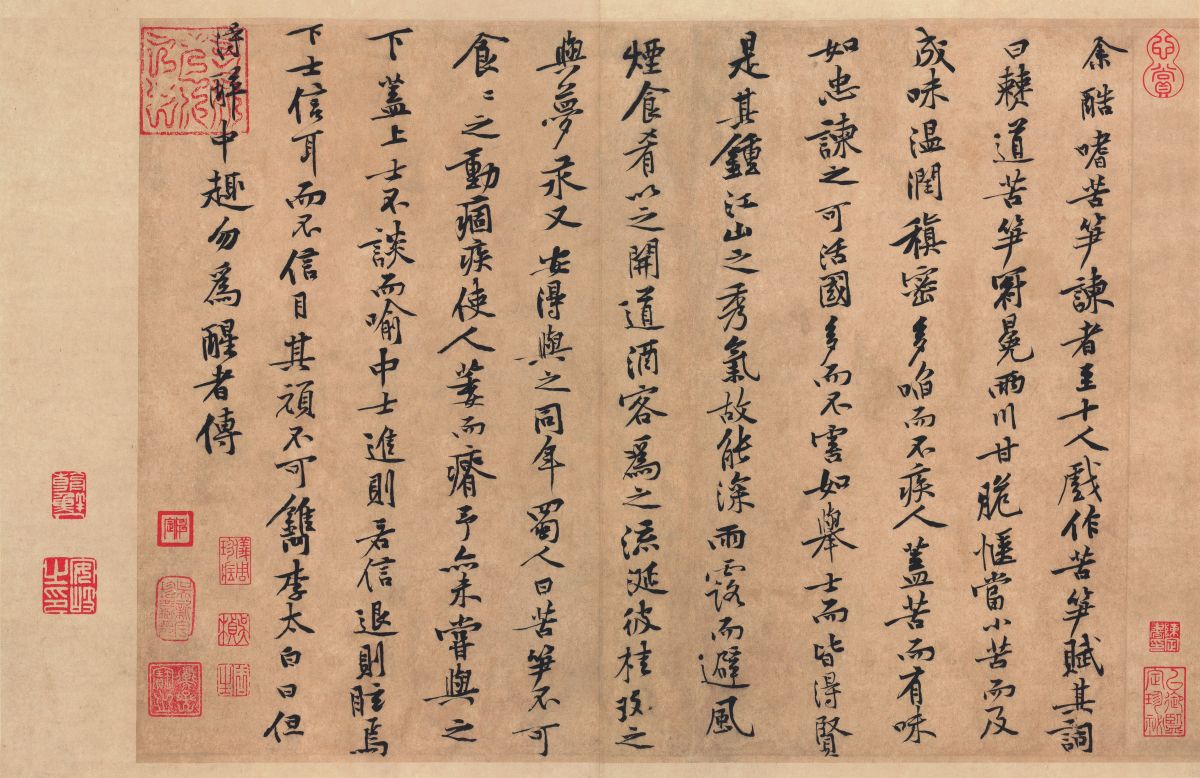 余酷嗜苦笋諫者至十人戲作苦笋賦其詞
曰僰道苦笋冠冕兩川甘脆愜當小苦而及
成味温潤稹密多啗而不疾人蓋苦而有味
如忠諫之可活國多而不害如舉士而皆得賢
是其鍾江山之秀氣故能深雨露而避風
煙食肴以之開道酒客爲之流涎彼桂玫之
與夢汞又安得與之同年蜀人曰苦笋不可
食〻之動痼疾使人萎而瘠予亦未嘗與之
下蓋上士不談而喻中士進則若信退則眩焉
下士信耳而不信目其頑不可鐫李太白曰但
得醉中趣勿爲醒者傳
儀周珍藏
安岐之印